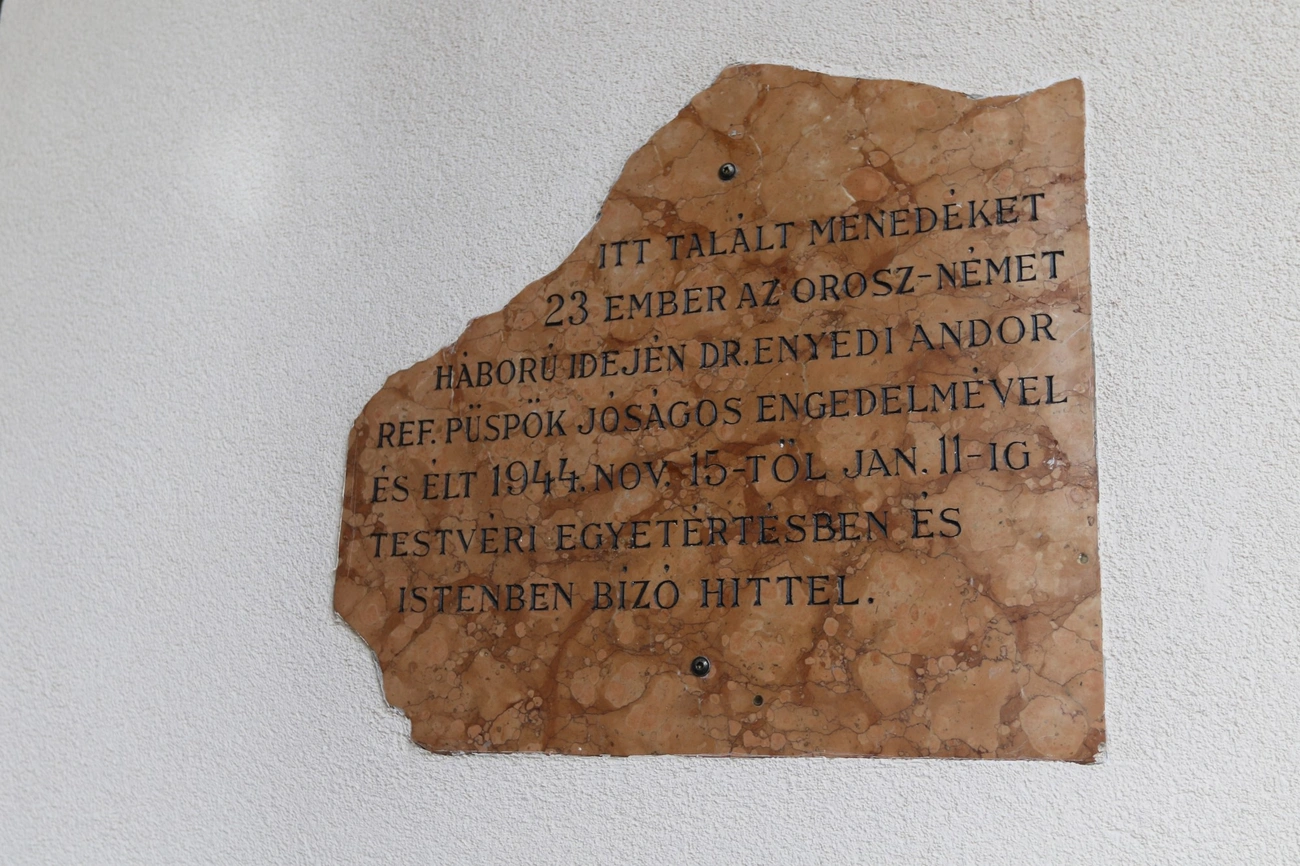 ITT TALÁLT MENEDÉKET
23 EMBER AZ OROSZ-NÉMET
HÁBORÚ IDEJÉN DR. ENYEDI ANDOR
REF. PÜSPÖK JÓSÁGOS ENGEDELMÉVEL
ÉS ÉLT 1944. NOV. 15-TÖL JAN. 11-IG
TESTVÉRI EGYETÉRTÉSBEN ÉS
ISTENBEN BÍZÓ HITTEL.